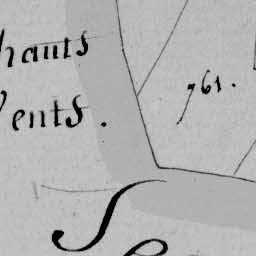 hauts
Vents.
761.